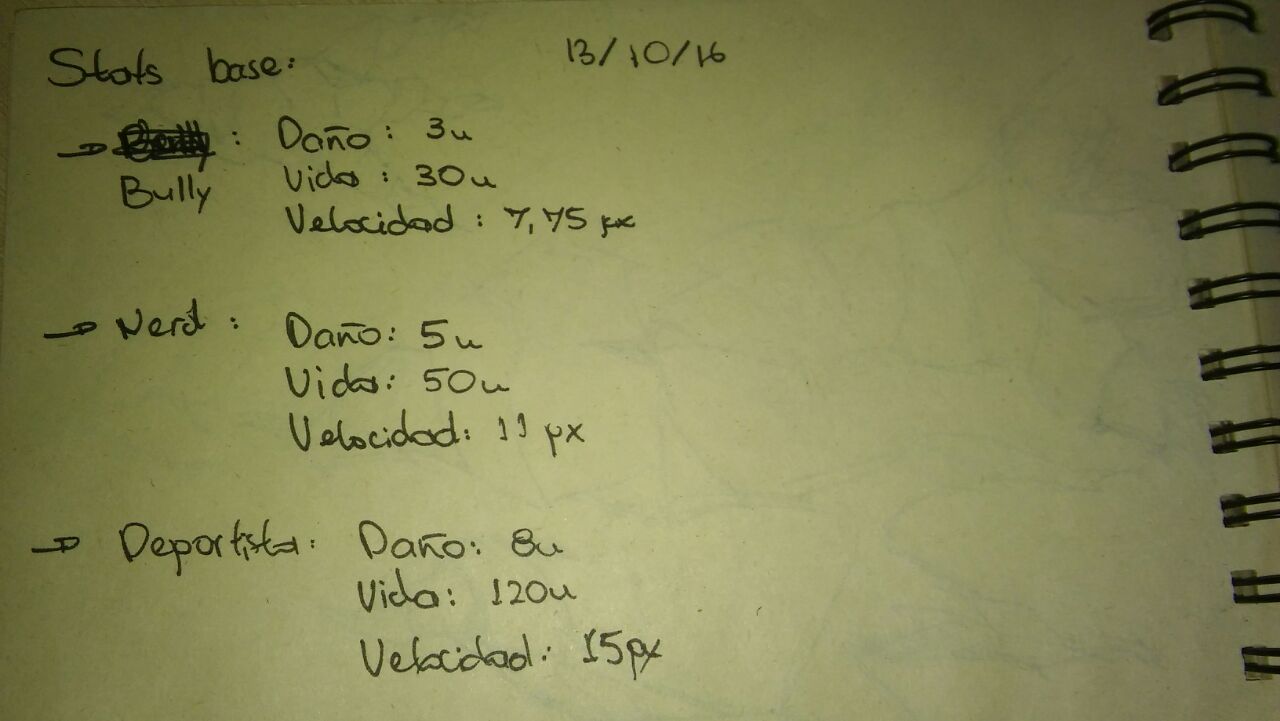 Stats base: 13/10/16
→ : Daño: 3u
Bully Vida: 30u
Velocidad: 7,75 px
→ Nerd: Daño: 5u
Vida: 50u
Velocidad: 11 px
→ Deportista: Daño: 8u
Vida: 120u
Velocidad: 15px